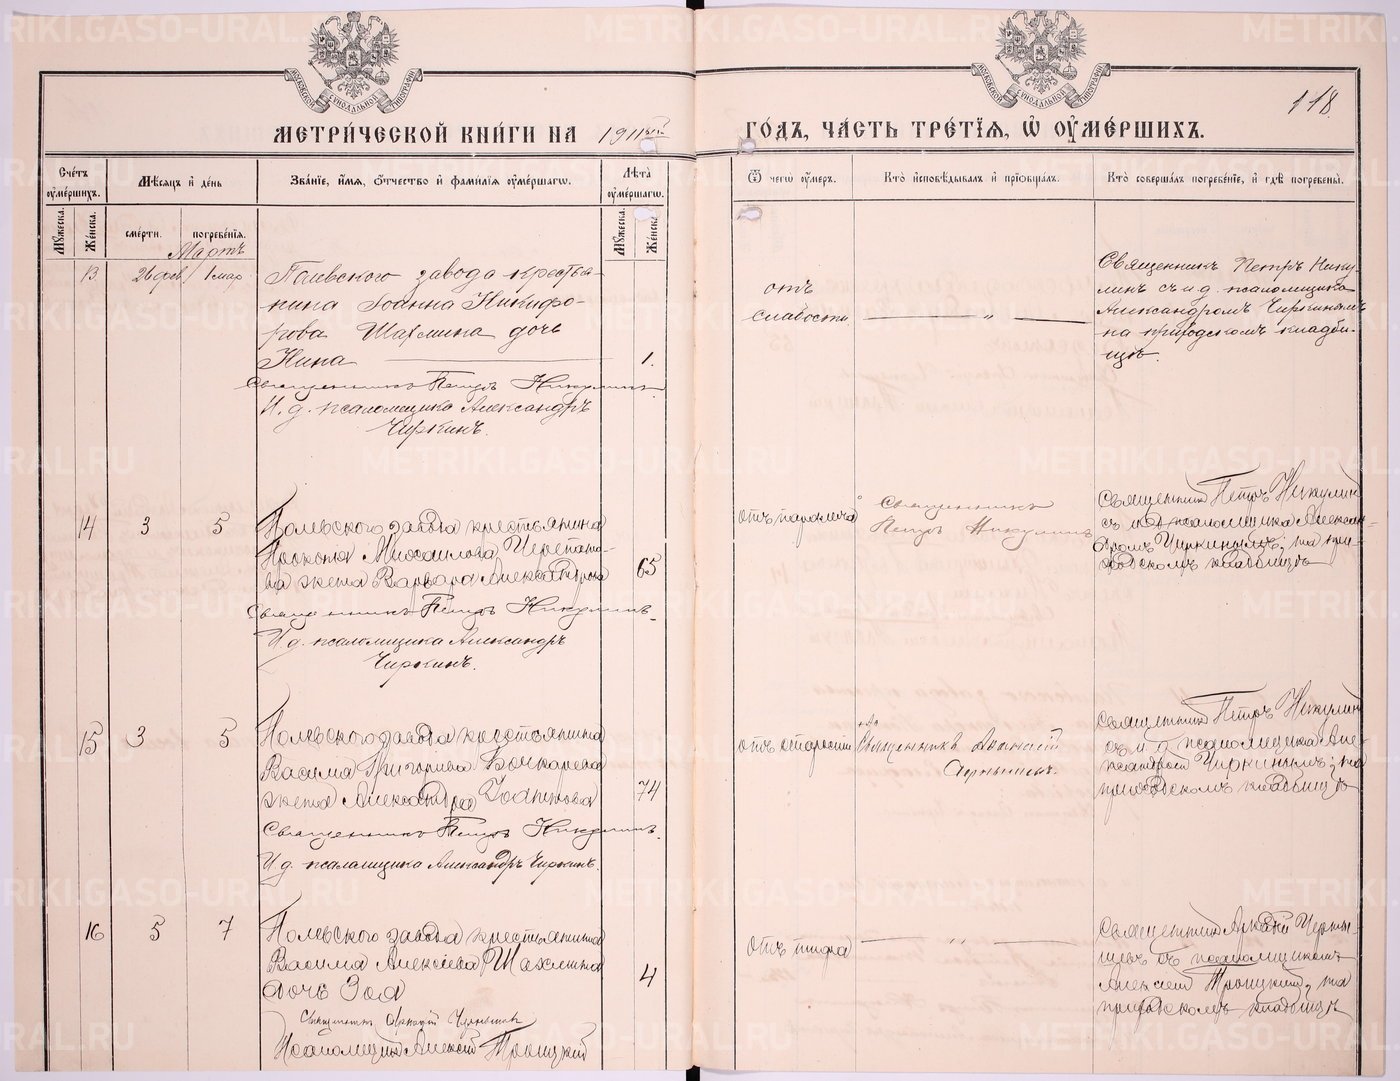 МОСКОВСКОЙ СѴНОДАЛЬНОЙ ТИПОГРАФІИ
МОСКОВСКОЙ СѴНОДАЛЬНОЙ ТИПОГРАФІИ
118.
МЕТРИ́ЧЕСКОЙ КНИ́ГИ НА 1911
ГО́ДЪ, ЧА́СТЬ ТРЕ́ТІЯ, Ѡ҆ ОУ҆МЕ́РШИХЪ.
Сче́тъ оу҆ме́ршихъ.
Мꙋ́жеска.
Же́нска.
Мѣ́сяцъ и҆ де́нь
сме́рти.
погребе́нія.
Зва́ніе, и҆́мя, ѻ҆́тчество и҆ фами́лія оу҆ме́ршагѡ.
Лѣ́та оу҆ме́ршагѡ.
Мꙋ́жеска.
Же́нска.
Ѿ чегѡ̀ оу҆́меръ.
Кто̀ и҆сповѣ́дывалъ и҆ прїѡбща́лъ.
Кто̀ соверша́лъ погребе́ніе, и҆ гдѣ̀ погребены̀.
Мартъ
13 26 фев. 1 мар.
Полевского завода крестья-
нина Іоанна Никифо-
рова Шахмина дочь
Нина 1.
Священникъ Петръ Никулинъ
И. д. псаломщика Александръ
Чиркинъ.
отъ
слабости
"
Священникъ Петръ Нику-
линъ съ и. д. псаломщика
Александромъ Чиркинымъ
на приходскомъ кладби-
щѣ.
14 3 5
Полевского завода крестьянина
Прокопія Михаилова Черепано-
ва жена Варвара Александрова 65
Священникъ Петръ Никулинъ.
И. д. псаломщика Александръ
Чиркинъ.
отъ паралича
Священникъ
Петръ Никулинъ
Священникъ Петръ Никулинъ
съ и д псаломщика Алексан-
дромъ Чиркинымъ, на при-
ходскомъ кладбищѣ
15 3 5
Полевского завода крестьянина
Василія Григорьева Бочкарева
жена Александра Іоаннова 74
Священникъ Петръ Никулинъ.
И д. псаломщика Александръ Чиркинъ.
отъ старости
Священникъ
Священникъ Петръ Никулинъ
съ и д псаломщика Але-
ксандромъ Чиркинымъ, на
приходскомъ кладбищѣ
16 5 7
Полевского завода крестьянина
Василія Алексѣева Шахмина
дочь Зоя 4
Священникъ Аркадій
Псаломщикъ Алексій Троицкій
отъ тифа
"
Священникъ Аркадій
съ псаломщикомъ
Алексіем Троицкимъ, на
приходскомъ кладбищѣ
METRIKI.GASO-URAL.RU